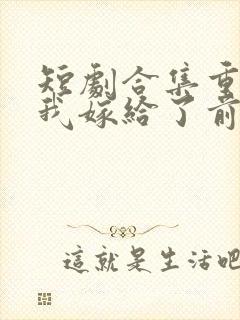 短劇合集重
我嫁給了前
這就是生活吧